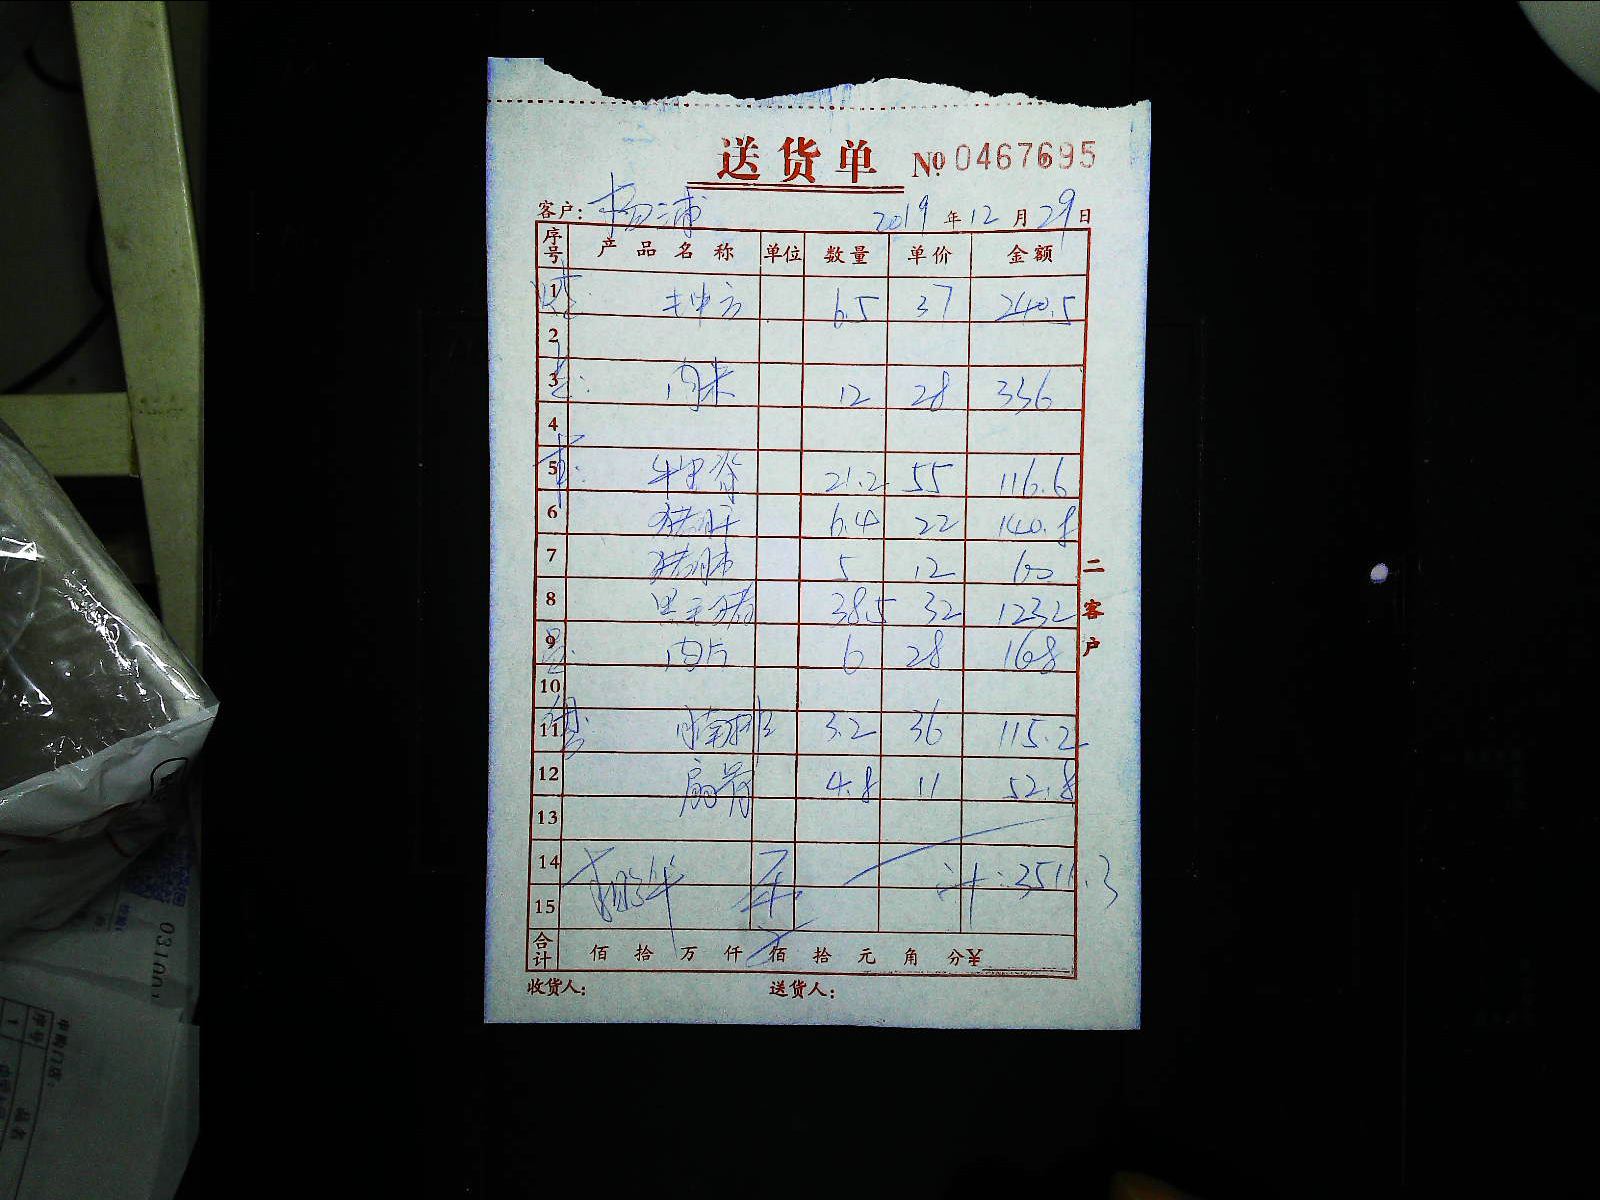 送货单 № 0467695
客户：杨浦 2019年12月29日
序号 产品名称 单位 数量 单价 金额
1 6.5 37 240.5
2
3 肉末 12 28 336
4
5 牛里脊 21.2 55 116.6
6 猪肝 6.4 22 140.8
7 猪肺 5 12 60
8 38.5 32 1232
9 肉片 6 28 168
10
11 3.2 36 115.2
12 扇骨 4.8 11 52.8
13
14 计：3511.3
15
合计 佰 拾 万 仟 佰 拾 元 角 分¥
收货人： 送货人：
二客户
031001
申购门店：
序号 品名
1